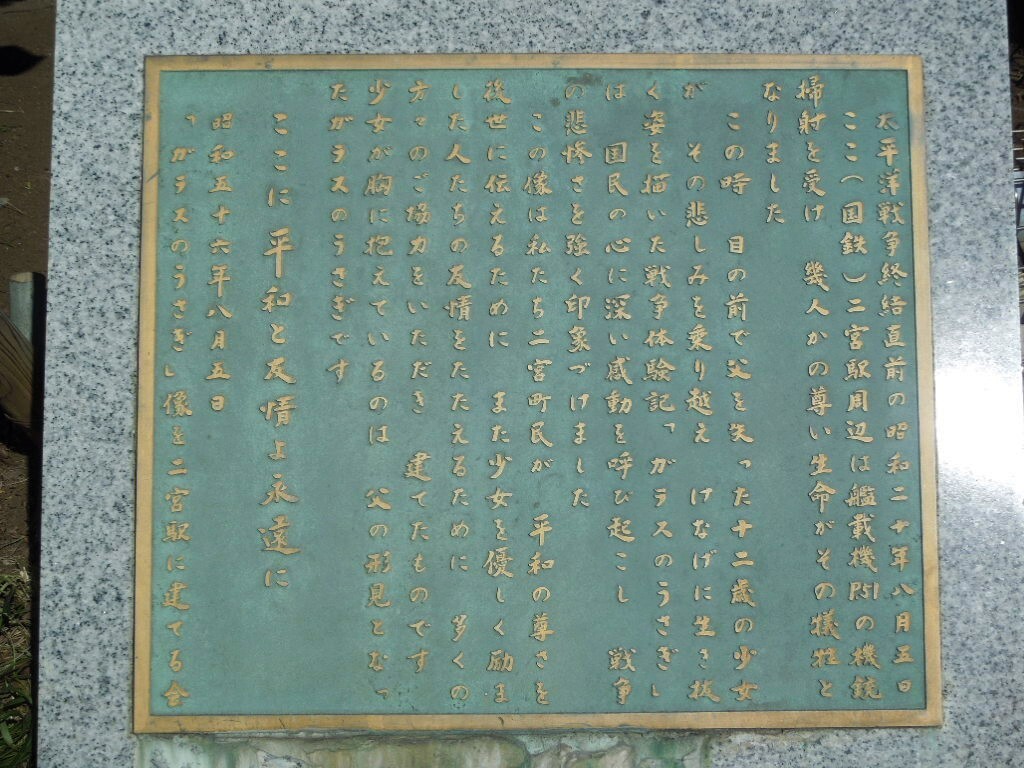 太平洋戦争終結直前の昭和二十年八月五日
ここ(国鉄)二宮駅周辺は艦載機P51の機銃
掃射を受け 幾人かの尊い生命がその犠牲と
なりました
この時 目の前で父を失った十二歳の少女
が その悲しみを乗り越え けなげに生き抜
く姿を描いた戦争体験記「ガラスのうさぎ」
は 国民の心に深い感動を呼び起こし 戦争
の悲惨さを強く印象づけました
この像は私たち二宮町民が 平和の尊さを
後世に伝えるために また少女を優しく励ま
した人たちの友情をたたえるために 多くの
方々のご協力をいただき 建てたものです
少女が胸に抱えているのは 父の形見となっ
たガラスのうさぎです
ここに 平和と友情よ永遠に
昭和五十六年八月五日
「ガラスのうさぎ」像を二宮駅に建てる会